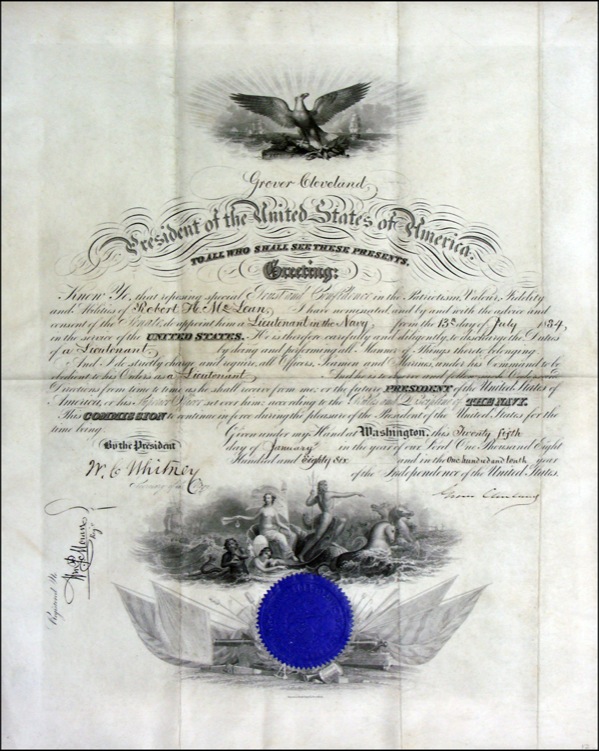 Grover Cleveland,
President of the United States of America.
TO ALL WHO SHALL SEE THESE PRESENTS,
Greeting:
Know Ye, that reposing special Trust and Confidence in the Patriotism, Valour, Fidelity
and Abilities of Robert H. McLean, I have nominated, and by and with the advice and
consent of the Senate, do appoint him a Lieutenant in the Navy, from the 13th day of July 1884,
in the service of the UNITED STATES. He is therefore carefully and diligently, to discharge the Duties
of a Lieutenant, by doing and performing all Manner of Things thereto belonging.
And I do strictly charge and require, all Officers, Seamen and Marines, under his Command to be
obedient to his Orders as a Lieutenant. And he is to observe and follow such Orders and
Directions from time to time as he shall receive from me, or the future PRESIDENT of the United States of
America, or his Superior Officer set over him, according to the Rules and Discipline of THE NAVY.
This COMMISSION to continue in force during the pleasure of the President of the United States, for the
time being.
Given under my Hand at Washington, this Twenty fifth
By the President
day of January in the year of our Lord One Thousand Eight
Hundred and Eighty Six and in the One hundred and tenth year
of the Independence of the United States.
W. C. Whitney
Secretary of the Navy
Grover Cleveland
Registered No